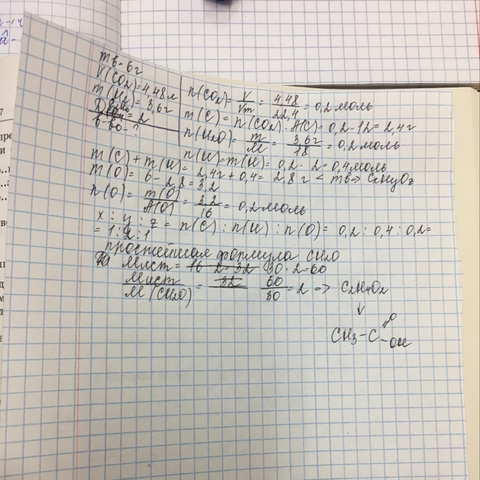 mв = 6г
V(CO₂) = 4,48л
m(H₂O) = 3,6г
= 2
в-во - ?
n(CO₂) = V/Vm = 4,48/22,4 = 0,2 моль
m(C) = n(CO₂) · A(C) = 0,2 · 12 = 2,4г
n(H₂O) = m/M = 3,6г/18 = 0,2 моль
n(H) = m(H) = 0,2 · 2 = 0,4 моль
m(C) + m(H) = 2,4г + 0,4 = 2,8 г < mв => CxHyOz
m(O) = 6 - 2,8 = 3,2
n(O) = m(O)/A(O) = 3,2/16 = 0,2 моль
x : y : z = n(C) : n(H) : n(O) = 0,2 : 0,4 : 0,2 =
= 1 : 2 : 1
простейшая формула CH₂O
Mист = 16 · 2 = 32 30 · 2 = 60
Mист/M(CH₂O) = 32 60/30 = 2 => C₂H₄O₂
CH₃ - C = O
- OH